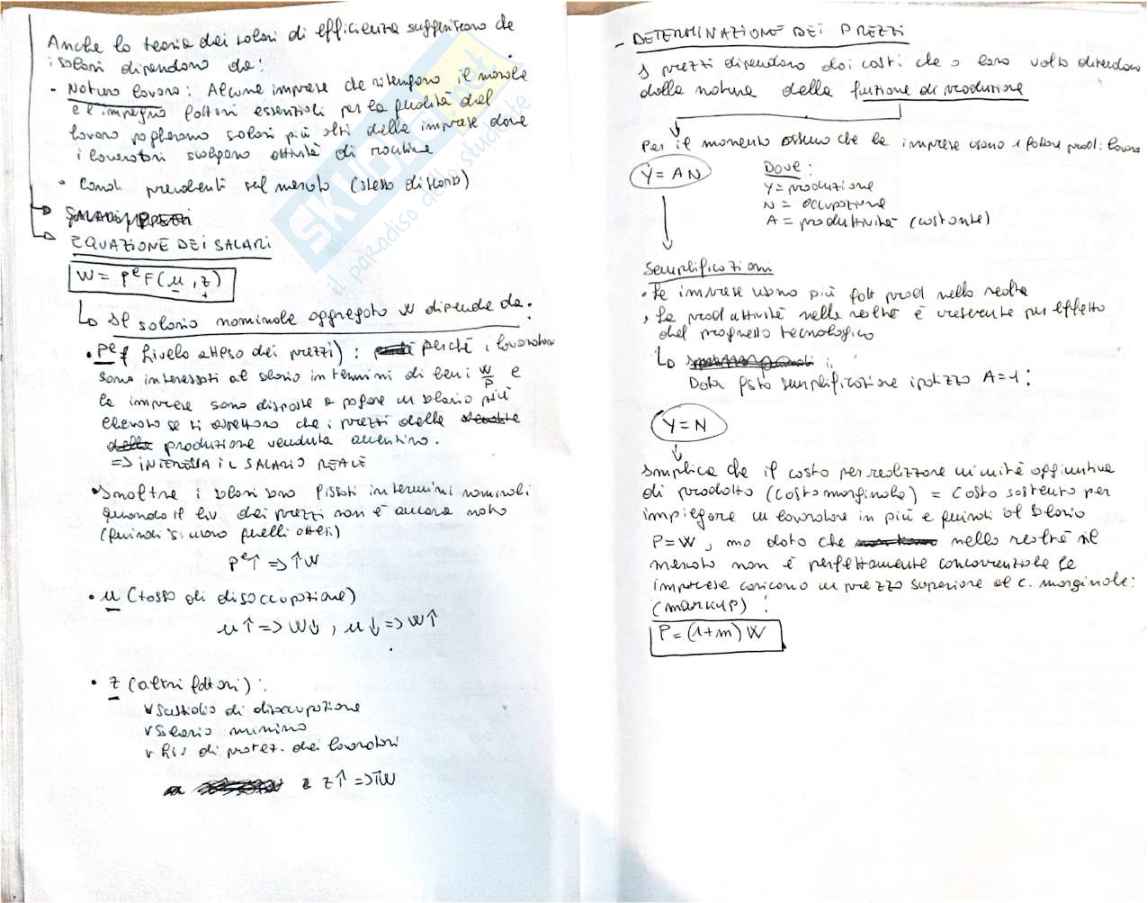 Anche la teoria dei salari di efficienza suggerisce che
i salari dipendono da:
- Natura lavoro: Alcune imprese che ritengono il morale
e l'impegno fattori essenziali per la qualità del
lavoro pagheranno salari più alti delle imprese dove
i lavoratori svolgono attività di routine
• Condi. prevalenti sul mercato (stesso discorso)
EQUAZIONE DEI SALARI
W = P^e F(u, z)
- +
Il salario nominale aggregato W dipende da:
• P^e (livello atteso dei prezzi): perché i lavoratori
sono interessati al salario in termini di beni W/P e
le imprese sono disposte a pagare un salario più
elevato se si aspettano che i prezzi della
produzione venduta aumentino.
=> INTERESSA IL SALARIO REALE
• Inoltre i salari sono fissati in termini nominali
quando il liv. dei prezzi non è ancora noto
(quindi si usano quelli attesi)
P^e↑ => ↑W
• u (tasso di disoccupazione)
u↑ => W↓, u↓ => W↑
• z (altri fattori):
v Sussidio di disoccupazione
v Salario minimo
v di protez. dei lavoratori
z↑ => ↑W
- DETERMINAZIONE DEI PREZZI
I prezzi dipendono dai costi che a loro volta dipendono
dalla natura della funzione di produzione
Per il momento assumo che le imprese usano 1 fattore prod: lavoro
Y = AN
Dove:
Y = produzione
N = occupazione
A = produttività (costante)
Semplificazioni
• Le imprese usano più fatt prod nella realtà
• La produttività nella realtà è crescente per effetto
del progresso tecnologico
Data qsta semplificazione ipotizzo A=1:
Y = N
Implica che il costo per realizzare un'unità aggiuntiva
di prodotto (costo marginale) = costo sostenuto per
impiegare un lavoratore in più e quindi al salario
P=W, ma dato che nella realtà il
mercato non è perfettamente concorrenziale le
imprese caricano un prezzo superiore al c. marginale:
(markup):
P = (1+m) W
SKUOLA.net
il paradiso dello studente